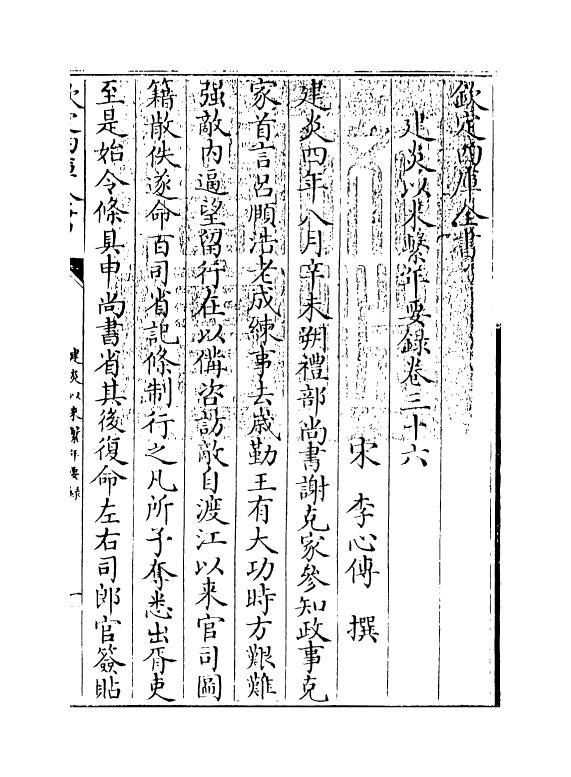 欽定四庫全書
建炎以來繫年要録卷三十六
宋 李心傳 撰
建炎四年八月辛未朔禮部尚書謝克家參知政事克
家首言吕頤浩老成練事去歲勤王有大功時方艱難
强敵内逼望留行在以備咨訪敵自渡江以来官司圖
籍散佚遂命百司省記條制行之凡所予奪悉出胥吏
至是始令條具申尚書省其後復命左右司郎官簽貼
欽定四庫全書
建炎以來繫年要録
一